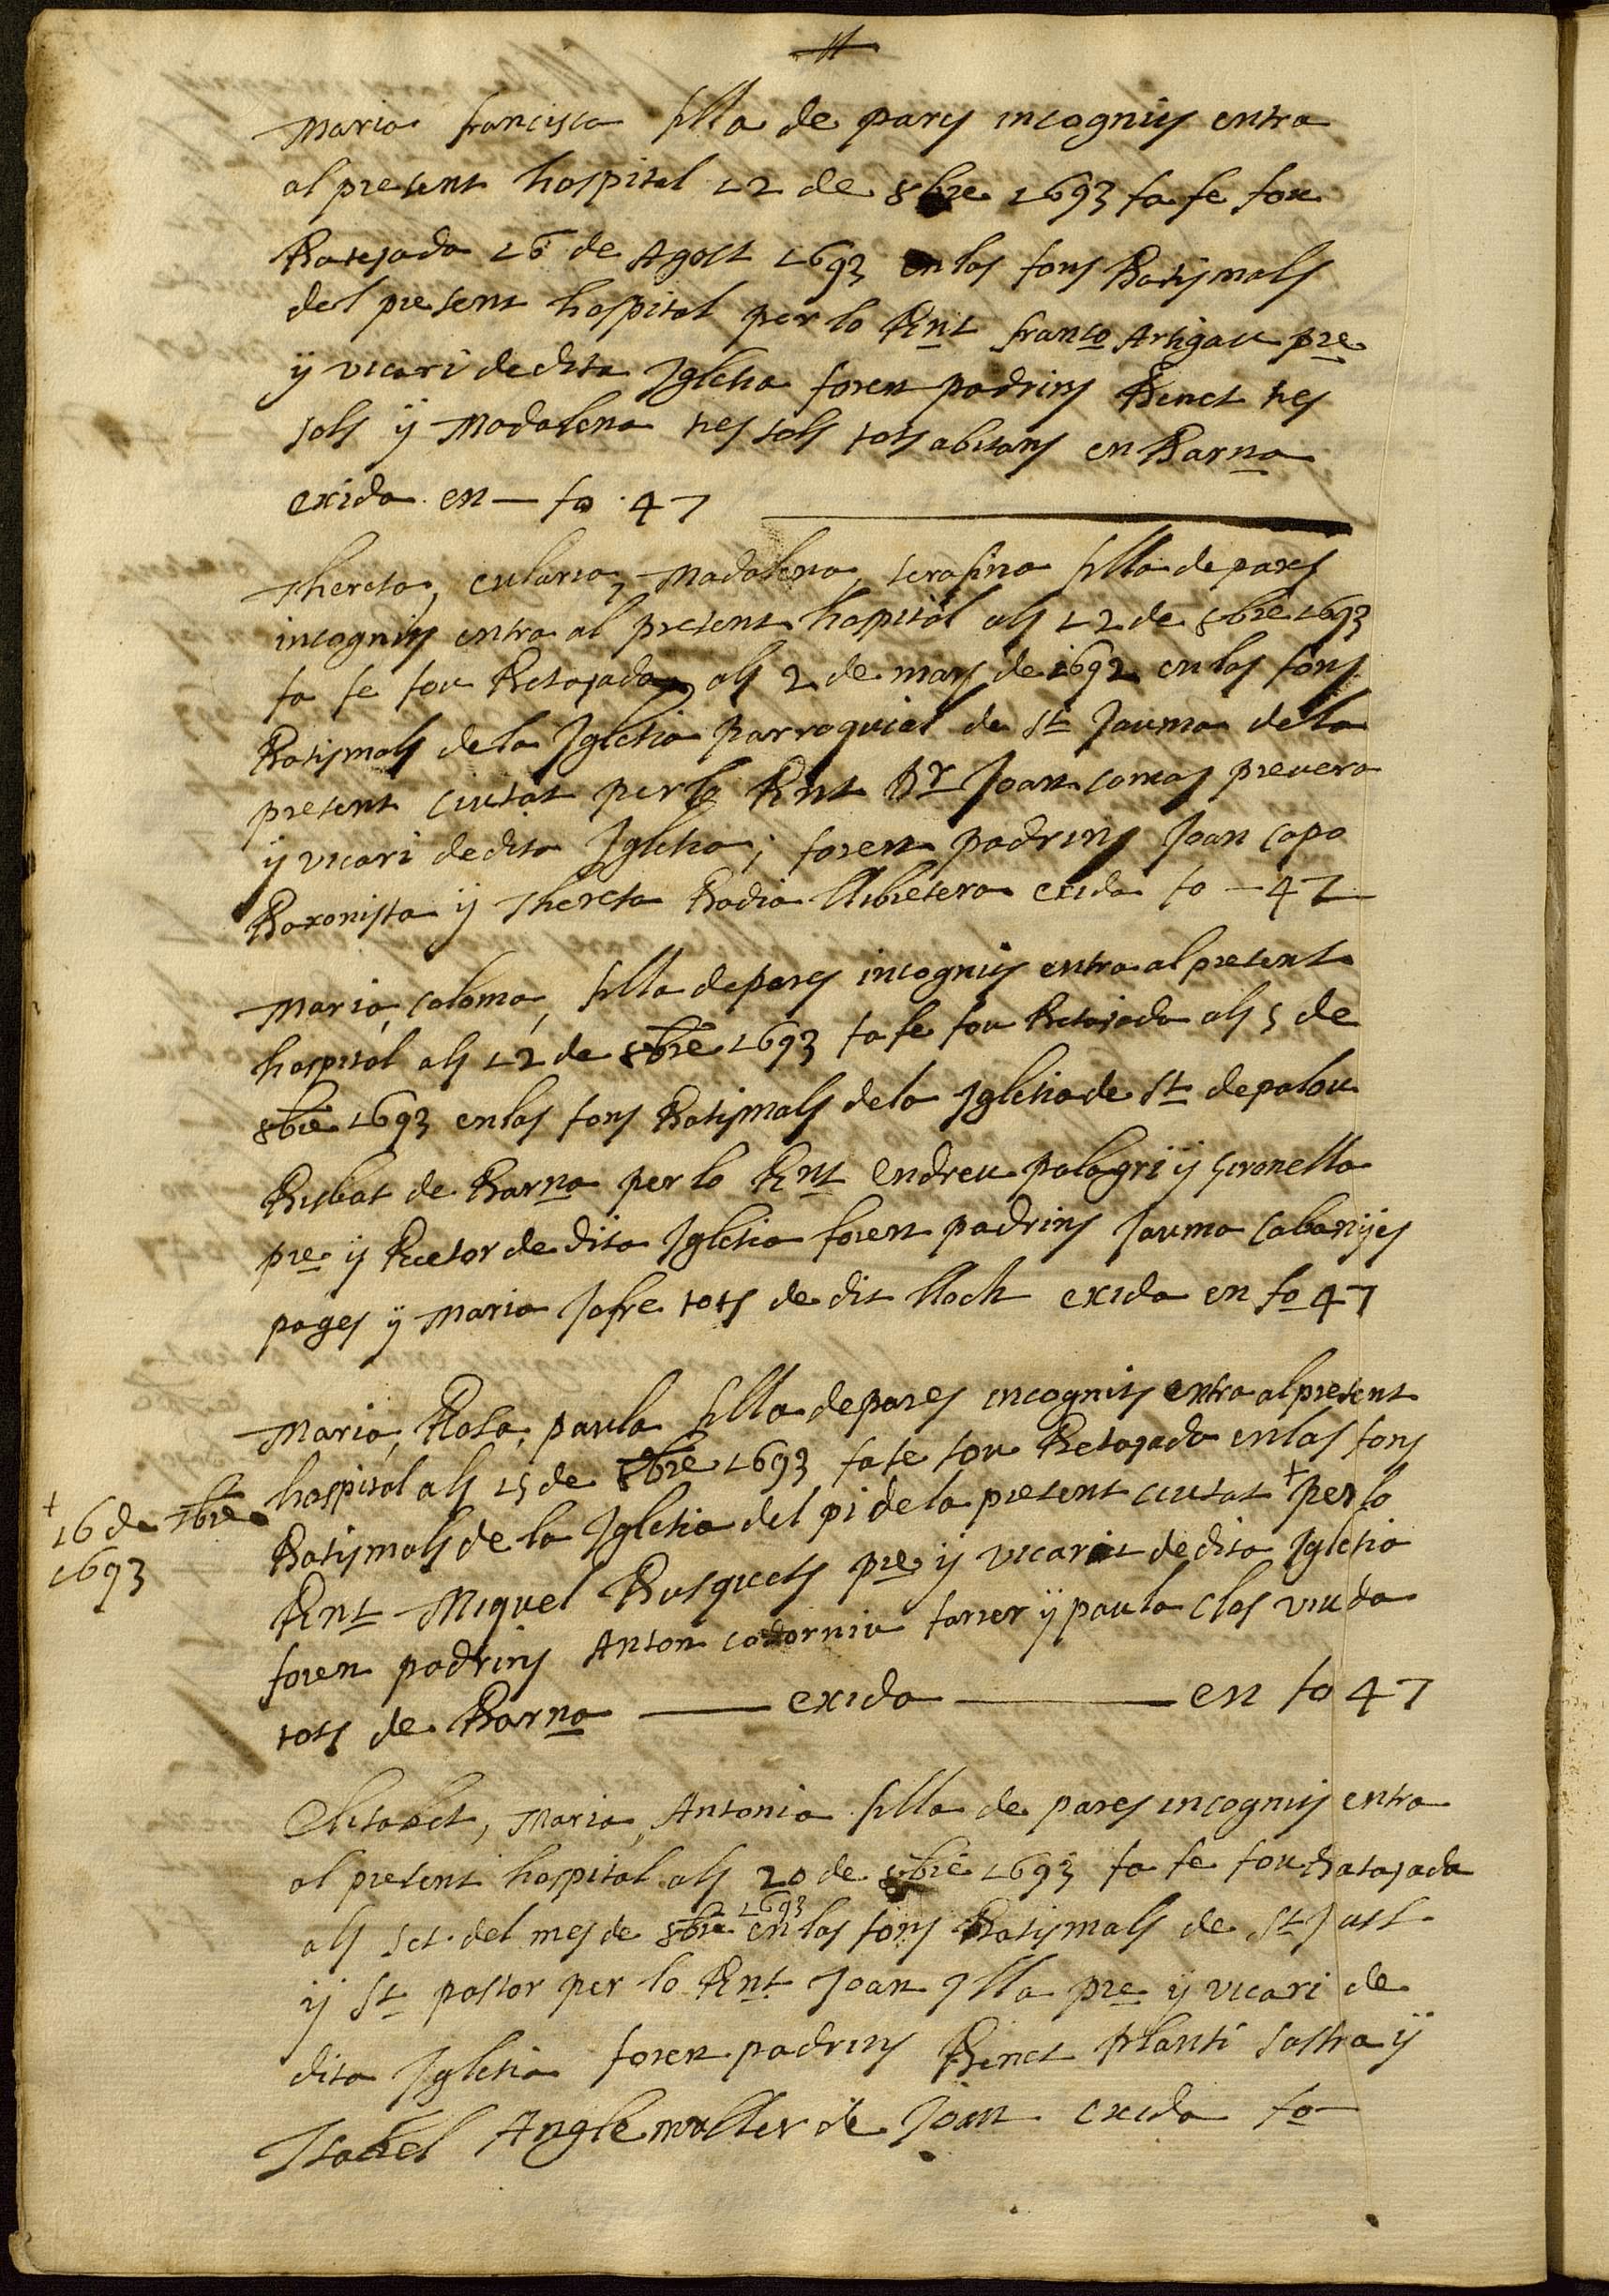 Maria francisca filla de pares incognits entra
al present hospital 12 de 8bre 1693 fa fe fou
Batejada 16 de Agost 1693 en las fons Batismals
del present hospital per lo Rnt franco Artigau pre
ÿ vicari de dita Iglesia foren padrins Benet nes
sols ÿ Madalena nes sols tots abitans en Barna
exida en — fo 47
Theresa, eularia, Madalena, serafina filla de pares
incognits entra al present hospital als 12 de 8bre 1693
fa fe fou Betajada als 2 de mars de 1692 en las fons
Batismals de la Iglesia parroquial de St Jauma de la
present ciutat per lo Rnt Dr Joan comas prevera
ÿ vicari de dita Iglesia; foren padrins Joan capa
Boxonista ÿ Theresa Badia llibretera exida fo — 47
Maria, coloma, filla de pares incognits entra al present
hospital als 12 de 8bre 1693 fa fe fou Betajada als 5 de
8bre 1693 en las fons Batismals de la Iglesia de St de palou
Bisbat de Barna per lo Rnt Endreu palagri ÿ gironella
pre ÿ Rector de dita Iglesia foren padrins Jauma Cabanÿes
pages ÿ Maria Jofre tots de dit lloch exida en fo 47
Maria, Rosa, paula filla de pares incognits entra al present
hospital als 15 de 8bre 1693 fa fe fou Betajada en las fons
+ 16 de 7bre
1693
Batismals de la Iglesia del pi de la present ciutat + per lo
Rnt Miquel Busquets pre ÿ vicari de dita Iglesia
foren padrins Anton codorniu farrer ÿ paula clos viuda
tots de Barna — exida — en fo 47
Elisabet, Maria, Antonia filla de pares incognits entra
al present hospital als 20 de 8bre 1693 fa fe fou Batajada
als set del mes de 8bre 1693 en las fons Batismals de St Just
ÿ St pastor per lo Rnt Joan Illa pre ÿ vicari de
dita Iglesia foren padrins Benet planti sastra ÿ
Isabel Angle muller de Joan exida fo